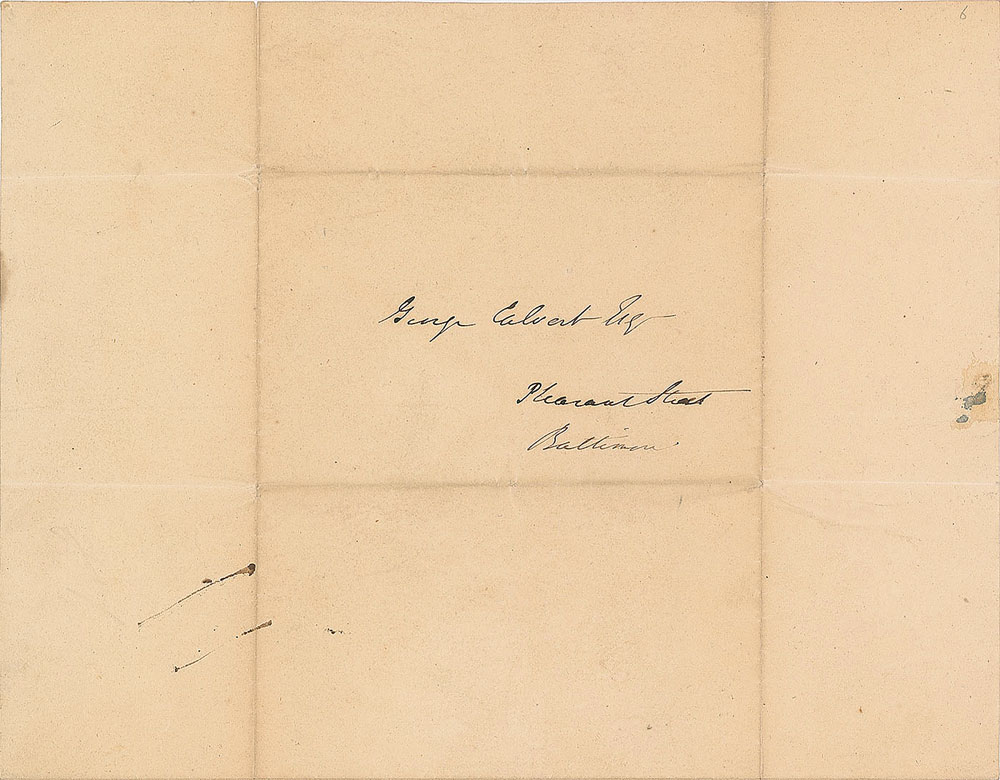 6
George Calvert Esqr
Pleasant Street
Baltimore